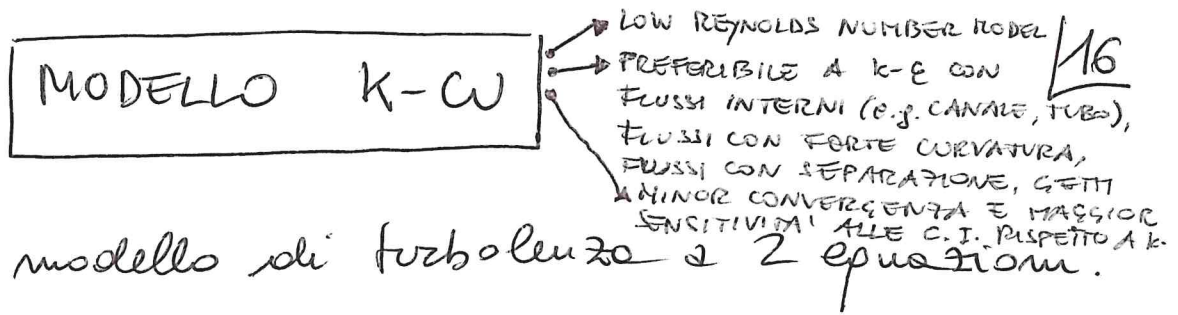 MODELLO K-ω
LOW REYNOLDS NUMBER MODEL
16
PREFERIBILE A K-ε CON
FLUSSI INTERNI (e.g. CANALE, TUBO),
FLUSSI CON FORTE CURVATURA,
FLUSSI CON SEPARAZIONE, GETTI
MINOR CONVERGENZA E MAGGIOR
SENSITIVITA' ALLE C.I. RISPETTO A K-
modello di turbolenza a 2 equazioni.